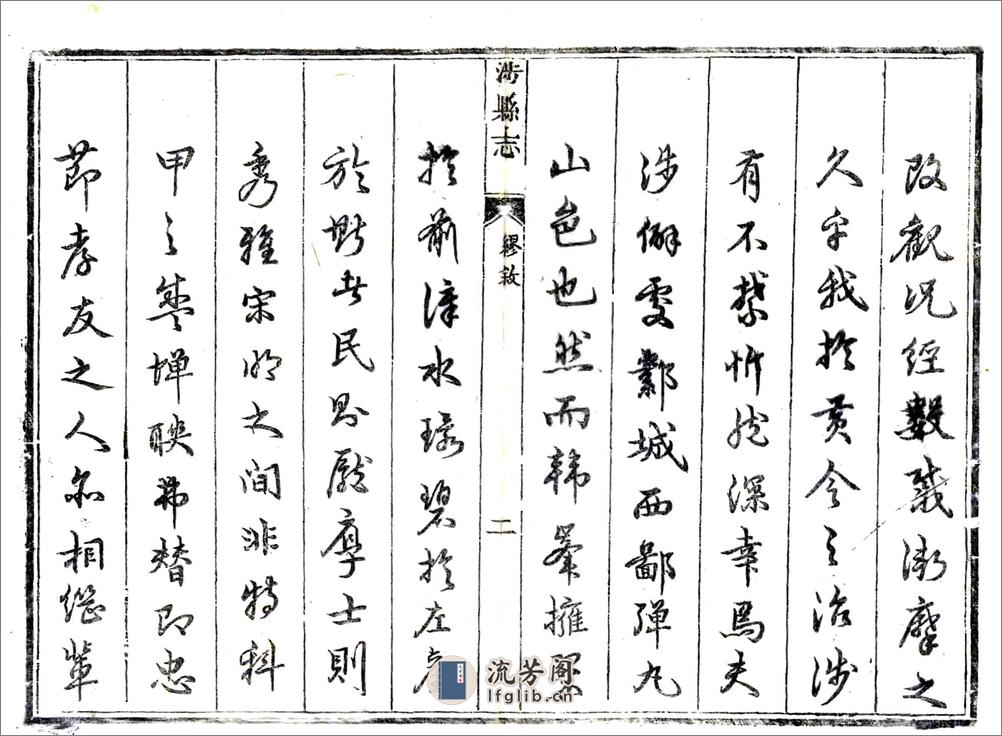 改觀況經數載漸摩之
久乎我於黃令之治涉
有不禁忻然深幸焉夫
涉僻處鄴城西鄙彈丸
山邑也然而韓峯擁翠
涉縣志
繆敘
二
於前漳水環碧於左產
於斯者民則愿厚士則
秀雅宋明之間非特科
甲之盛蟬聯弗替即忠
節孝友之人亦相繼輩
流芳阁
lfglib.cn